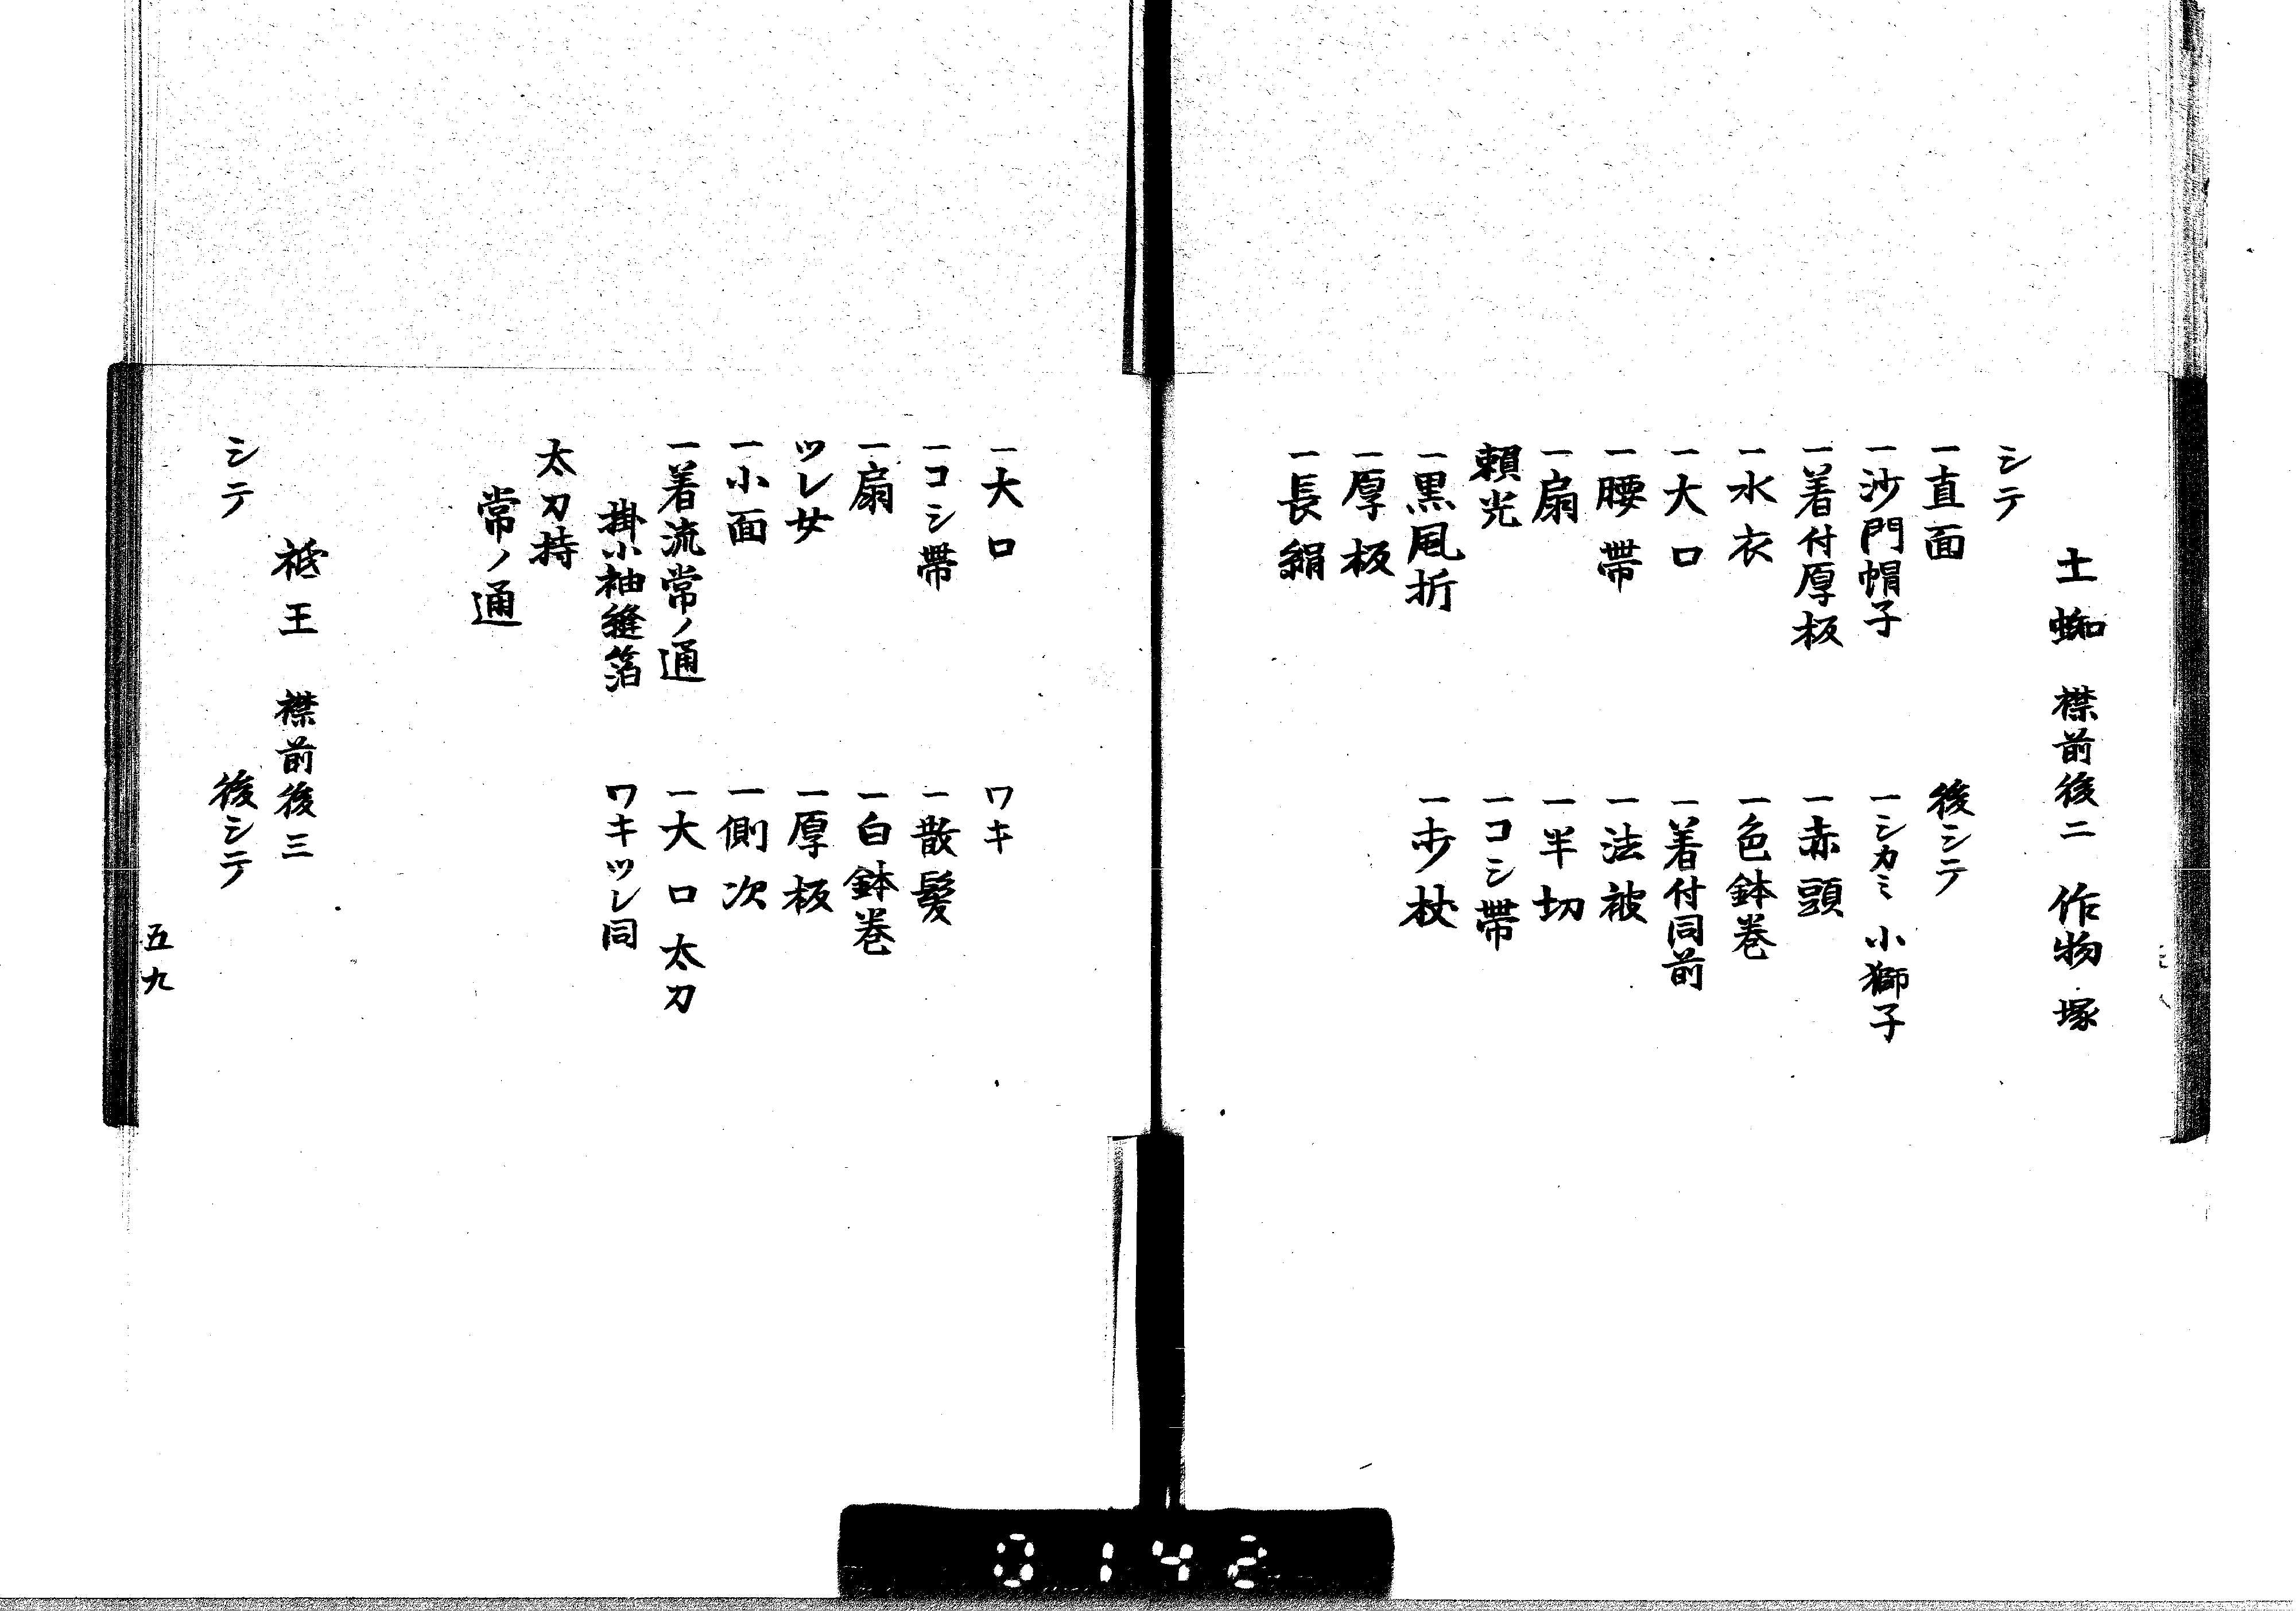 土蜘 襟前後二 作物塚
シテ
一直面
一沙門帽子
一着付厚板
一水衣
一大口
一腰帯
一扇
頼光
一黒風折
一厚板
一長絹
後シテ
一シカミ 小獅子
一赤頭
一色鉢巻
一着付同前
一法被
一半切
一コシ帯
一歩杖
一大口
一コシ帯
一扇
ツレ女
一小面
一着流常ノ通
掛小袖縫箔
太刀持
常ノ通
ワキ
一散髪
一白鉢巻
一厚板
一側次
一大口 太刀
ワキツレ同
祗王 襟前後三
シテ
後シテ
五九
0142